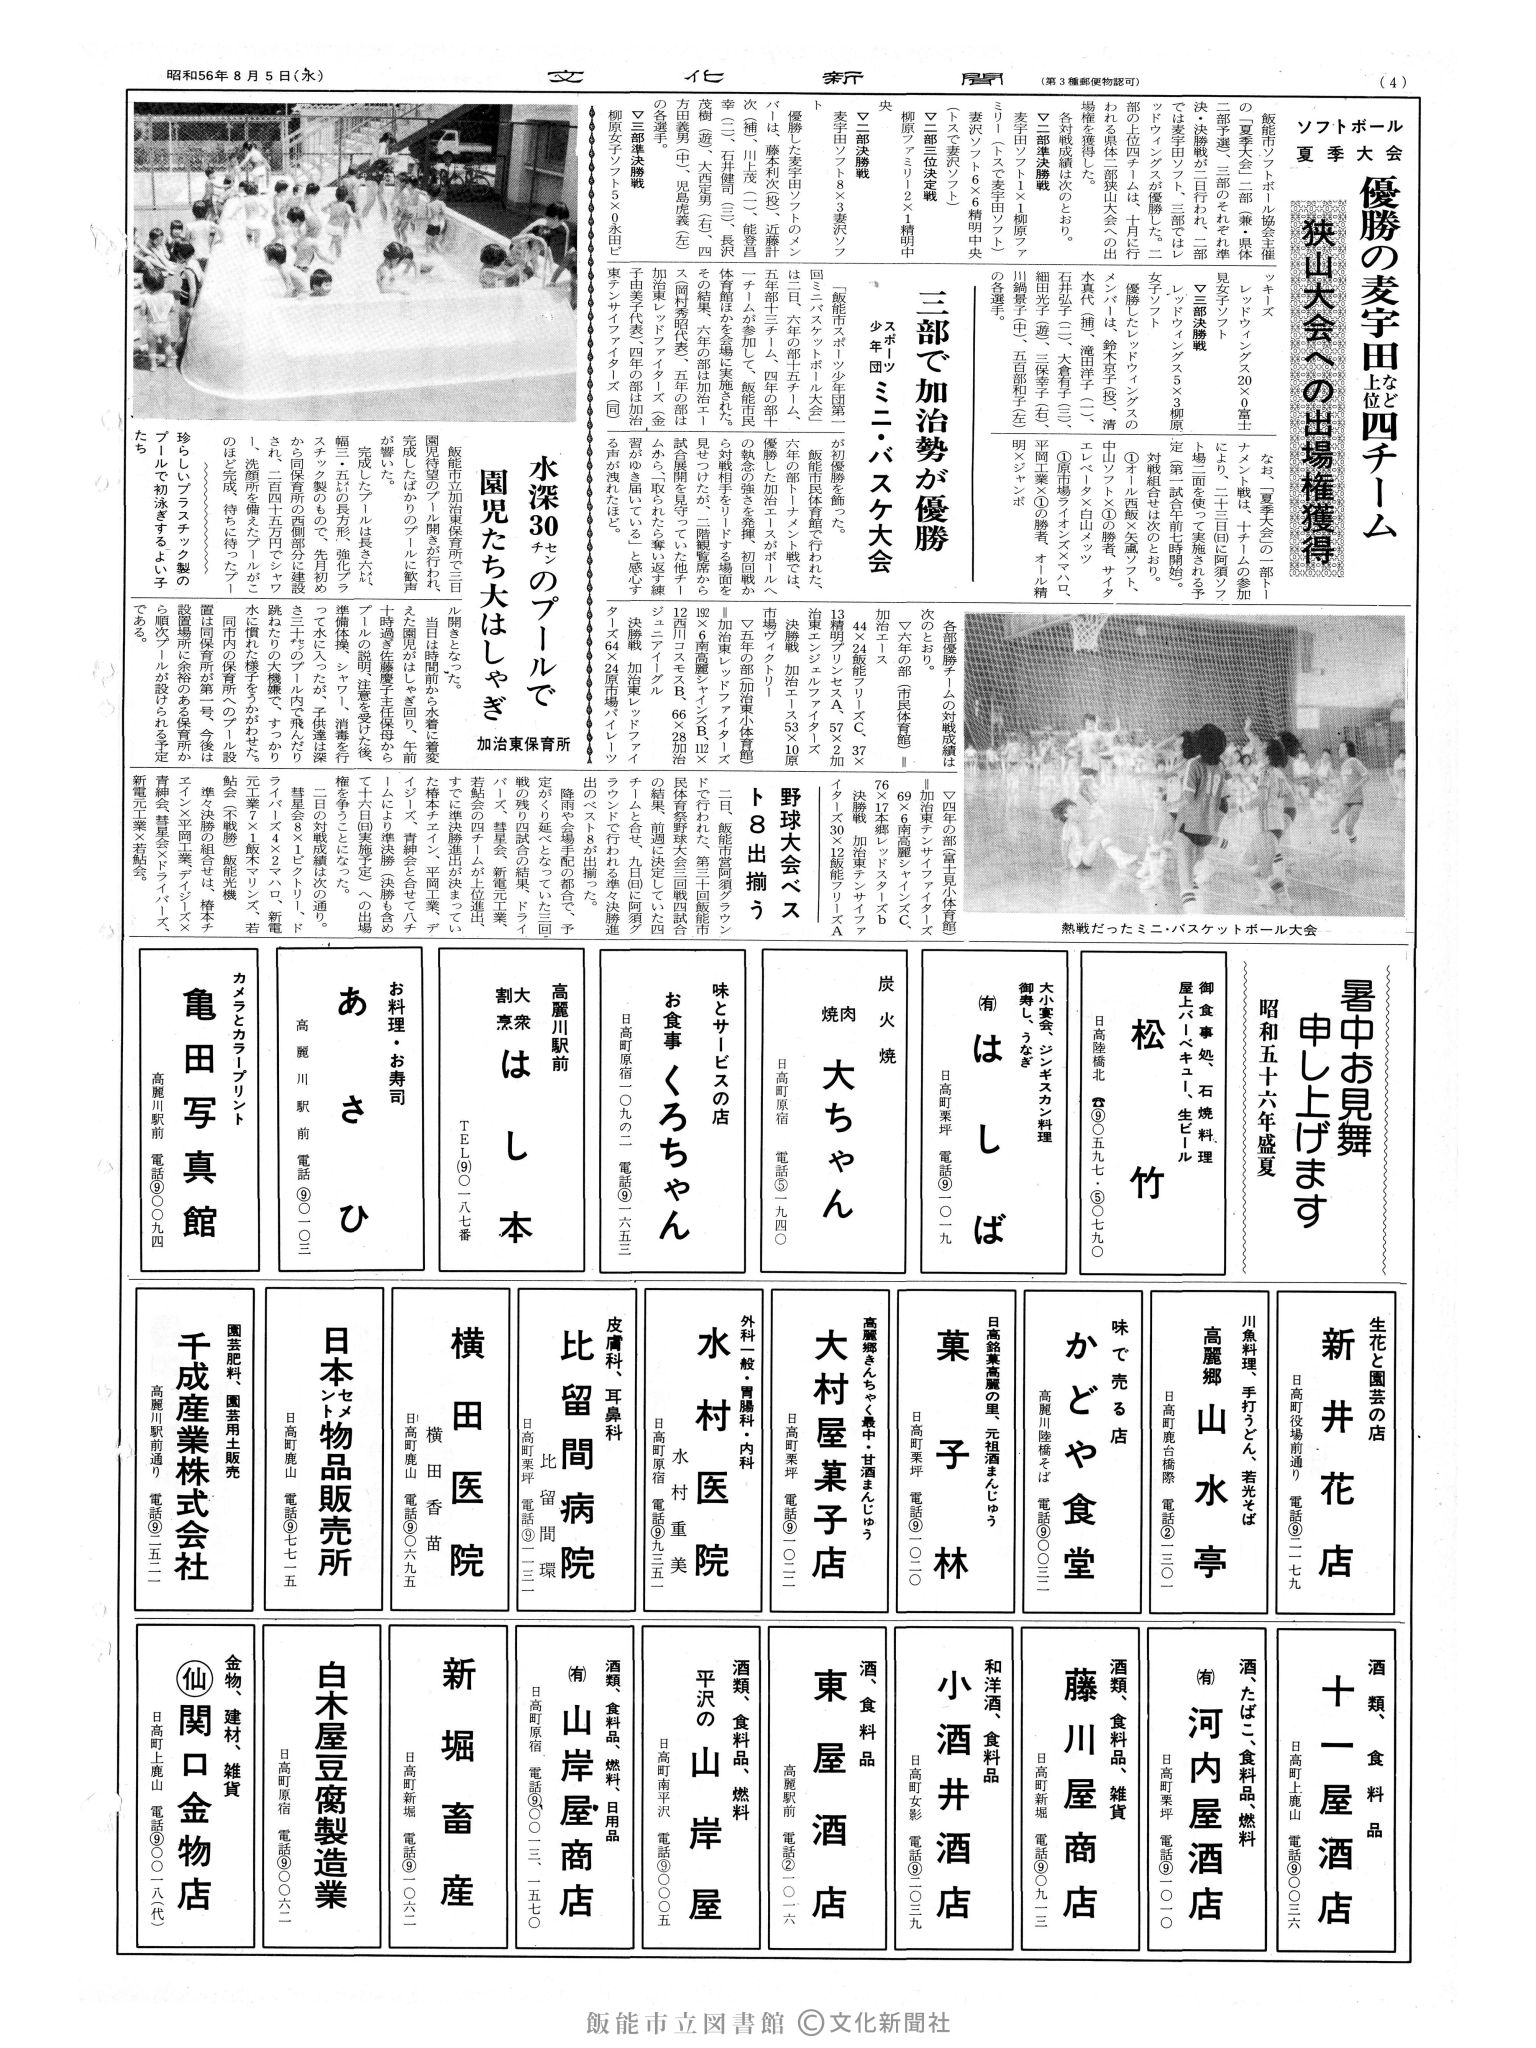 昭和56年8月5日(水)
文化新聞
(第3種郵便物認可)
(4)
ソフトボール
夏季大会
優勝の麦宇田など上位四チーム
狭山大会への出場権獲得
飯能市ソフトボール協会主催
の「夏季大会」二部(兼・県体
二部予選)、三部のそれぞれ準
決・決勝戦が二日行われ、二部
では麦宇田ソフト、三部ではレ
ッドウィングスが優勝した。二
部の上位四チームは、十月に行
われる県体二部狭山大会への出
場権を獲得した。
各対戦成績は次のとおり。
▽二部準決勝戦
麦宇田ソフト1×1柳原ファ
ミリー(トスで麦宇田ソフト)
妻沢ソフト6×6精明中央
(トスで妻沢ソフト)
▽二部三位決定戦
柳原ファミリー2×1精明中
央
▽二部決勝戦
麦宇田ソフト8×3妻沢ソフ
ト
優勝した麦宇田ソフトのメン
バーは、藤本利次(投)、近藤計
次(補)、川上茂(一)、能登昌
幸(二)、石井健司(三)、長沢
茂樹(遊)、大西定男(右)、四
方田義男(中)、児島虎義(左)
の各選手。
▽三部準決勝戦
柳原女子ソフト5×0永田ビ
ッキーズ
レッドウィングス20×0富士
見女子ソフト
▽三部決勝戦
レッドウィングス5×3柳原
女子ソフト
優勝したレッドウィングスの
メンバーは、鈴木京子(投)、清
水真代(捕)、滝田洋子(一)、
石井弘子(二)、大倉有子(三)、
細田光子(遊)、三保幸子(右)、
川鍋景子(中)、五百部和子(左)
の各選手。
なお、「夏季大会」の一部トー
ナメント戦は、十チームの参加
により、二十三日(日)に阿須ソフ
ト場二面を使って実施される予
定(第一試合午前七時開始)。
対戦組合せは次のとおり。
①オール西飯×矢颪ソフト、
中山ソフト×①の勝者、サイタ
エレベータ×白山メッツ
①原市場ライオンズ×マハロ、
平岡工業×①の勝者、オール精
明×ジャンボ
三部で加治勢が優勝
スポーツ少年団 ミニ・バスケ大会
「飯能市スポーツ少年団第一
回ミニバスケットボール大会」
は二日、六年の部十五チーム、
五年部十三チーム、四年の部十
一チームが参加して、飯能市民
体育館ほかを会場に実施された。
その結果、六年の部は加治エー
ス(岡村秀昭代表)、五年の部は
加治東レッドファイターズ(金
子由美子代表)、四年の部は加治
東テンサイファイターズ(同)
が初優勝を飾った。
飯能市民体育館で行われた、
六年の部トーナメント戦では、
優勝した加治エースがボールへ
の執念の強さを発揮、初回戦か
ら対戦相手をリードする場面を
見せつけたが、二階観覧席から
試合展開を見守っていた他チー
ムから、「取られたら奪い返す練
習がゆき届いている」と感心す
る声が洩れたほど。
各部優勝チームの対戦成績は
次のとおり。
▽六年の部(市民体育館)=
加治エース
44×24飯能フリーズC、37×
13精明プリンセスA、57×2加
治東エンジェルファイターズ
決勝戦 加治エース53×10原
市場ヴィクトリー
▽五年の部(加治東小体育館)
=加治東レッドファイターズ
192×6南高麗シャインズB、112×
12西川コスモスB、66×28加治
ジュニアイーグル
決勝戦 加治東レッドファイ
ターズ64×24原市場パイレーツ
▽四年の部(富士見小体育館)
=加治東テンサイファイターズ
69×6南高麗シャインズC、
76×17本郷レッドスターズb
決勝戦 加治東テンサイファ
イターズ30×12飯能フリーズA
熱戦だったミニ・バスケットボール大会
水深30センチのプールで
園児たち大はしゃぎ
加治東保育所
飯能市立加治東保育所で三日
園児待望のプール開きが行われ、
完成したばかりのプールに歓声
が響いた。
完成したプールは長さ六㍍、
幅三・五㍍の長方形、強化プラ
スチック製のもので、先月初め
から同保育所の西側部分に建設
され、二百四十五万円でシャワ
ー、洗顔所を備えたプールがこ
のほど完成、待ちに待ったプー
ル開きとなった。
当日は時間前から水着に着変
えた園児がはしゃぎ回り、午前
十時過ぎ佐藤慶子主任保母から
プールの説明、注意を受けた後、
準備体操、シャワー、消毒を行
って水に入ったが、子供達は深
さ三十㌢のプール内で飛んだり
跳ねたりの大機嫌で、すっかり
水に慣れた様子をうかがわせた。
同市内の保育所へのプール設
置は同保育所が第一号、今後は
設置場所に余裕のある保育所か
ら順次プールが設けられる予定
である。
珍らしいプラスチック製の
プールで初泳ぎするよい子
たち
野球大会ベス
ト8出揃う
二日、飯能市営阿須グラウン
ドで行われた、第三十回飯能市
民体育祭野球大会三回戦四試合
の結果、前週に決定していた四
チームと合せ、九日(日)に阿須グ
ラウンドで行われる準々決勝進
出のベスト8が出揃った。
降雨や会場手配の都合で、予
定がくり延べとなっていた三回
戦の残り四試合の結果、ドライ
バーズ、彗星会、新電元工業、
若鮎会の四チームが上位進出、
すでに準決勝進出が決まってい
た椿本チエイン、平岡工業、デ
イジーズ、青紳会と合せて八チ
ームにより準決勝(決勝も含め
て十六日(日)実施予定)への出場
権を争うことになった。
二日の対戦成績は次の通り。
彗星会8×1ビクトリー、ド
ライバーズ4×2マハロ、新電
元工業7×1飯木マリンズ、若
鮎会(不戦勝)飯能光機
準々決勝の組合せは、椿本チ
エイン×平岡工業、デイジーズ×
青紳会、彗星会×ドライバーズ、
新電元工業×若鮎会。
暑中お見舞
申し上げます
昭和五十六年盛夏
御食事処、石焼料理
屋上バーベキュー、生ビール
松竹
日高陸橋北 ☎⑨〇五九七・⑤〇七九〇
大小宴会、ジンギスカン料理
御寿し、うなぎ
(有)はしば
日高町栗坪 電話⑨一〇一九
炭火焼
焼肉 大ちゃん
日高町原宿 電話⑤一九四〇
味とサービスの店
お食事 くろちゃん
日高町原宿一〇九の二 電話⑨一六五三
高麗川駅前
大衆割烹 はし本
TEL(9)〇一八七番
お料理・お寿司
あさひ
高麗川駅前 電話⑨〇一〇三
カメラとカラープリント
亀田写真館
高麗川駅前 電話⑨〇〇九四
生花と園芸の店
新井花店
日高町役場前通り 電話⑨二一七九
川魚料理、手打うどん、若光そば
高麗郷 山水亭
日高町鹿台橋際 電話②一三〇一
味で売る店
かどや食堂
高麗川陸橋そば 電話⑨〇〇三二
日高銘菓高麗の里、元祖酒まんじゅう
菓子林
日高町栗坪 電話⑨一〇二〇
高麗郷きんちゃく最中・甘酒まんじゅう
大村屋菓子店
日高町栗坪 電話⑨一〇二二
外科一般・胃腸科・内科
水村医院
水村重美
日高町原宿 電話⑨九三五一
皮膚科、耳鼻科
比留間病院
比留間環
日高町栗坪 電話⑨一一三一
横田医院
横田香苗
日高町鹿山 電話⑨〇六九五
日本セメント物品販売所
日高町鹿山 電話⑨七七一五
園芸肥料、園芸用土販売
千成産業株式会社
高麗川駅前通り 電話⑨二五二一
酒類、食料品
十一屋酒店
日高町上鹿山 電話⑨〇〇三六
酒、たばこ、食料品、燃料
(有)河内屋酒店
日高町栗坪 電話⑨一〇一〇
酒類、食料品、雑貨
藤川屋商店
日高町新堀 電話⑨〇九一三
和洋酒、食料品
小酒井酒店
日高町女影 電話⑨二〇三九
酒、食料品
東屋酒店
高麗駅前 電話②一〇一六
酒類、食料品、燃料
平沢の山岸屋
日高町南平沢 電話⑨〇〇〇五
酒類、食料品、燃料、日用品
(有)山岸屋商店
日高町原宿 電話⑨〇〇一三、一五七〇
新堀畜産
日高町新堀 電話⑨一〇六二
白木屋豆腐製造業
日高町原宿 電話⑨〇〇六二
金物、建材、雑貨
仙 関口金物店
日高町上鹿山 電話⑨〇〇一八(代)
飯能市立図書館 ©文化新聞社